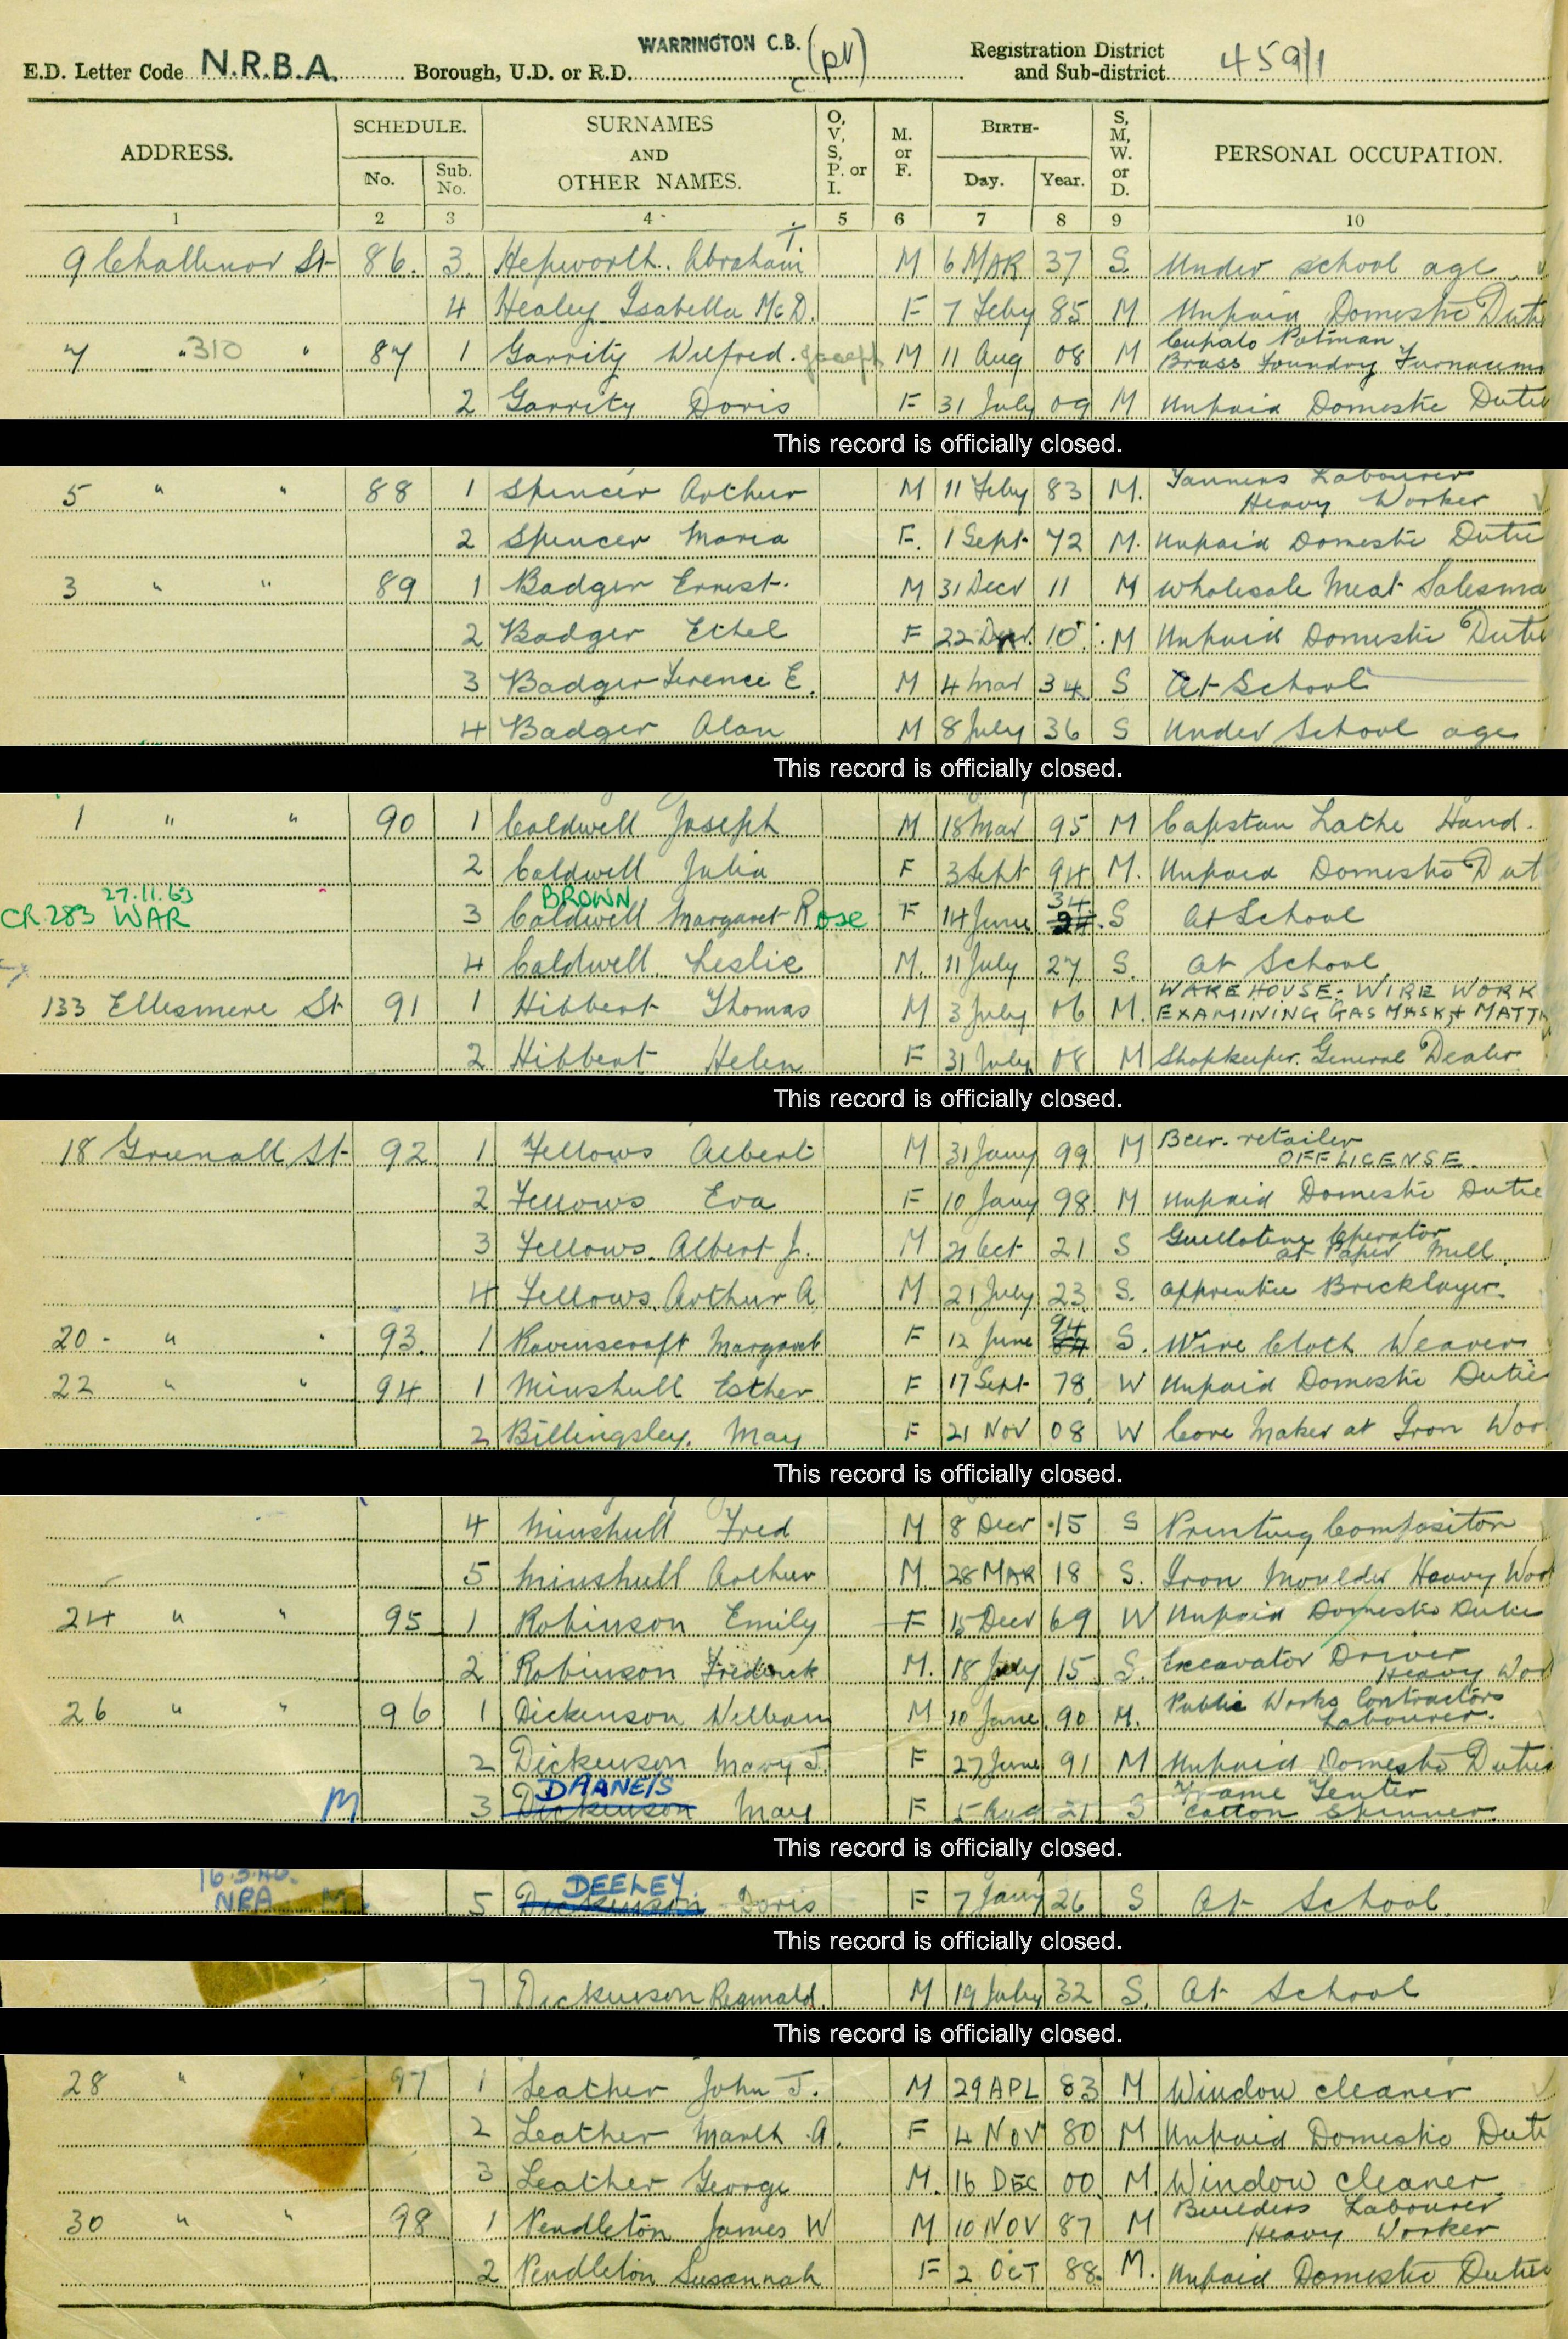 WARRINGTON C.B. (pt)
E.D. Letter Code N.R.B.A. Borough, U.D. or R.D. Registration District and Sub-district 459/1
ADDRESS. SCHEDULE. No. Sub. No. SURNAMES AND OTHER NAMES. O, V, S, P. or I. M. or F. BIRTH- Day. Year. S, M, W. or D. PERSONAL OCCUPATION.
1 2 3 4 5 6 7 8 9 10
9 Challinor St 86. 3. Hepworth. Abraham T M 6 MAR 37 S. Under school age
4 Healey Isabella McD. F 7 Feby 85 M Unpaid Domestic Dut
7 " 310 " 87 1 Garrity Wilfred. Joseph M 11 Aug 08 M Cupalo Potman Brass Foundry Furnacem
2 Garrity Doris F 31 July 09 M Unpaid Domestic Dutie
This record is officially closed.
5 " " 88 1 Spencer Arthur M 11 Feby 83 M. Tanners Labourer Heavy Worker
2 Spencer Maria F. 1 Sept 72 M. Unpaid Domestic Dutie
3 " " 89 1 Badger Ernest. M 31 Decr 11 M Wholesale Meat Salesma
2 Badger Ethel F 22 10 M Unpaid Domestic Dutie
3 Badger Terence E. M 4 Mar 34 S At School
4 Badger Alan M 8 July 36 S Under School age
This record is officially closed.
1 " " 90 1 Caldwell Joseph M 18 Mar 95 M Capstan Lathe Hand.
2 Caldwell Julia F 3 Sept 94 M. Unpaid Domestic Dut
27.11.63 BROWN 34
CR 283 WAR 3 Caldwell Margaret Rose F 14 June 24. S At School
4 Caldwell. Leslie M. 11 July 27 S. At School
133 Ellesmere St 91 1 Hibbert Thomas M 3 July 06 M. WAREHOUSE- WIRE WORK EXAMINING GAS MASK, + MATT
2 Hibbert Helen F 31 July 08 M Shopkeeper. General Dealer
This record is officially closed.
18 Greenall St 92 1 Fellows Albert M 31 Jany 99 M Beer retailer OFF LICENSE.
2 Fellows Eva F 10 Jany 98 M Unpaid Domestic Dutie
3 Fellows. Albert J. M 21 Oct 21 S Guillotine Operator at Paper Mill
4 Fellows. Arthur A M 21 July 23 S. Apprentice Bricklayer
20 - " " 93. 1 Ravenscroft Margaret F 12 June 94 S. Wire Cloth Weaver
22 " " 94 1 Minshull Esther F 17 Sept 78 W Unpaid Domestic Duties
2 Billingsley. May F 21 Nov 08 W Core Maker at Iron Wor
This record is officially closed.
4 Minshull Fred M 8 Decr 15 S Printing Compositor
5 Minshull Arthur M 28 MAR 18 S. Iron Moulder Heavy Wor
24 " " 95 1 Robinson Emily F 15 Decr 69 W Unpaid Domestic Duties
2 Robinson Frederick M. 18 July 15 S. Excavator Driver Heavy Wor
26 " " 96 1 Dickenson William M 10 June 90 M. Public Works Contractors Labourer.
2 Dickenson Mary J. F 27 June 91 M Unpaid Domestic Duties
DAANEIS
M 3 Dickenson May F 5 Aug 21 S Frame Tenter Cotton Spinner.
This record is officially closed.
DEELEY
NRA M 5 Dickenson Doris F 7 Jany 26 S At School
This record is officially closed.
7 Dickenson Reginald. M 19 July 32 S. At School
This record is officially closed.
28 " " 97 1 Leather John J. M 29 APL 83 M Window cleaner
2 Leather Marth A. F 4 NOV 80 M Unpaid Domestic Duti
3 Leather George M. 16 DEC 00 M Window cleaner
30 " " 98 1 Pendleton James W M 10 NOV 87 M Builders Labourer Heavy Worker
2 Pendleton Susannah F 2 OCT 88. M. Unpaid Domestic Duties